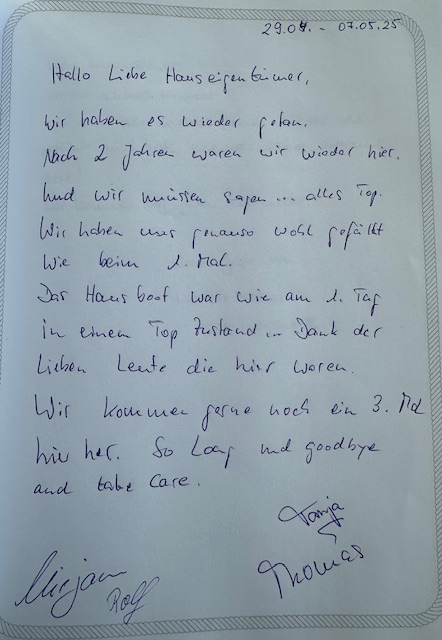 29.04. - 07.05.25
Hallo Liebe Hauseigentümer,
wir haben es wieder getan.
Nach 2 Jahren waren wir wieder hier.
Und wir müssen sagen... alles Top.
Wir haben uns genauso wohl gefühlt
wie beim 1. Mal.
Das Hausboot war wie am 1. Tag
in einem Top Zustand... Dank der
Lieben Leute die hier waren.
Wir kommen gerne noch ein 3. Mal
hier her. So Long und goodbye
and take care.
Tanja
Thomas
Mirjam
Rolf